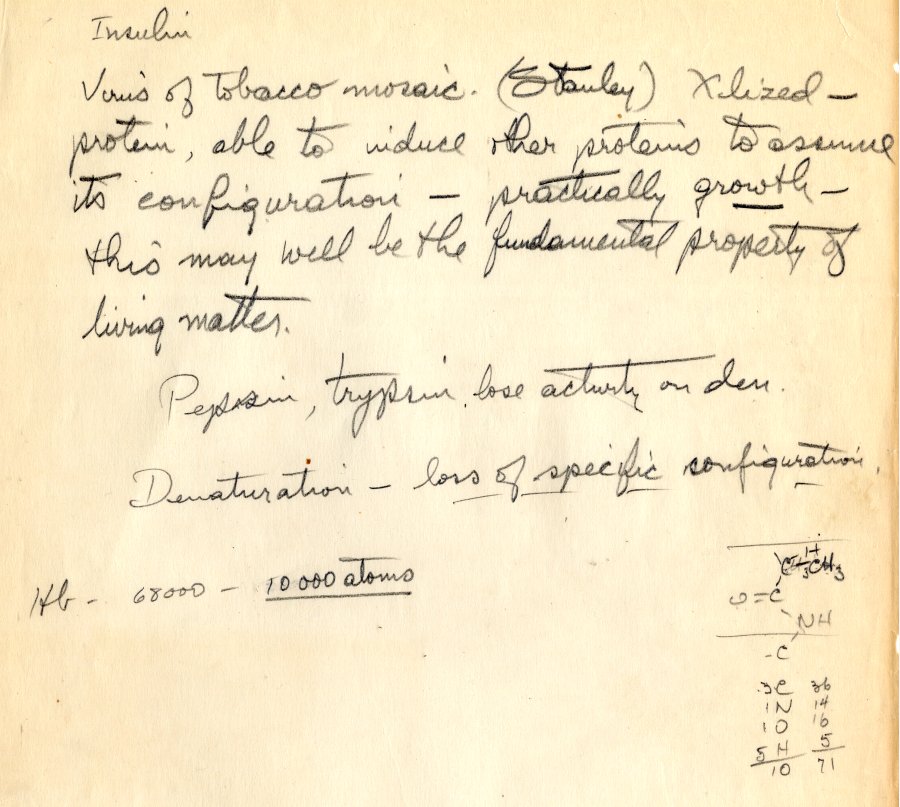 Insulin
Virus of tobacco mosaic. (Stanley) Xlized –
protein, able to induce other proteins to assume
its configuration – practically growth –
this may well be the fundamental property of
living matter.
Pepsin, trypsin lose activity on den.
Denaturation – loss of specific configuration.
Hb - 68000 - 10 000 atoms
H
CH3
O=C
NH
-C
3C 36
1N 14
1O 16
5H 5
10 71